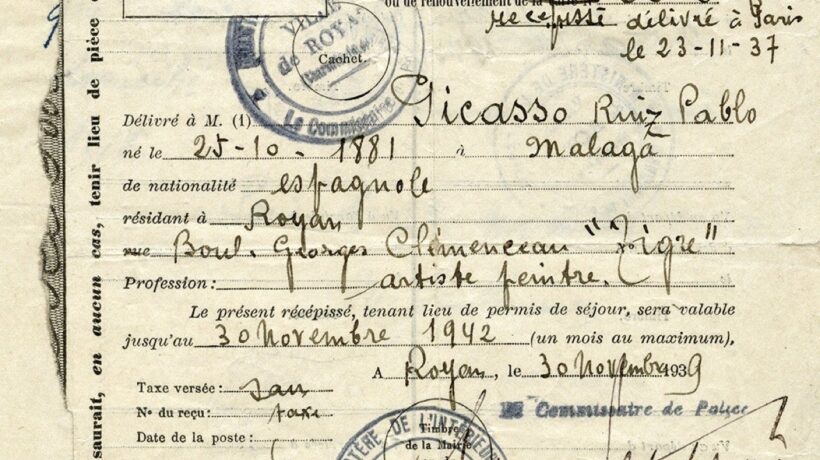 ou de renouvellement de la carte N°
récépissé délivré à Paris
le 23-11-37
VILLE
de ROYAN
Cachet.
Le Commissaire
Délivré à M. (1) Picasso Ruiz Pablo
né le 25-10-1881 à Malaga
de nationalité espagnole
résidant à Royan
rue Boul. Georges Clémenceau "Tigre"
Profession: artiste peintre.
Le présent récépissé, tenant lieu de permis de séjour, sera valable
jusqu'au 30 Novembre 1942 (un mois au maximum).
A Royan, le 30 Novembre 1939
Taxe versée: sans
N° du reçu: taxe
Commissaire de Police
Date de la poste:
TÈRE DE L'INTÉRIEUR
Timbre
de la Mairie
saurait, en aucun cas, tenir lieu de pièce